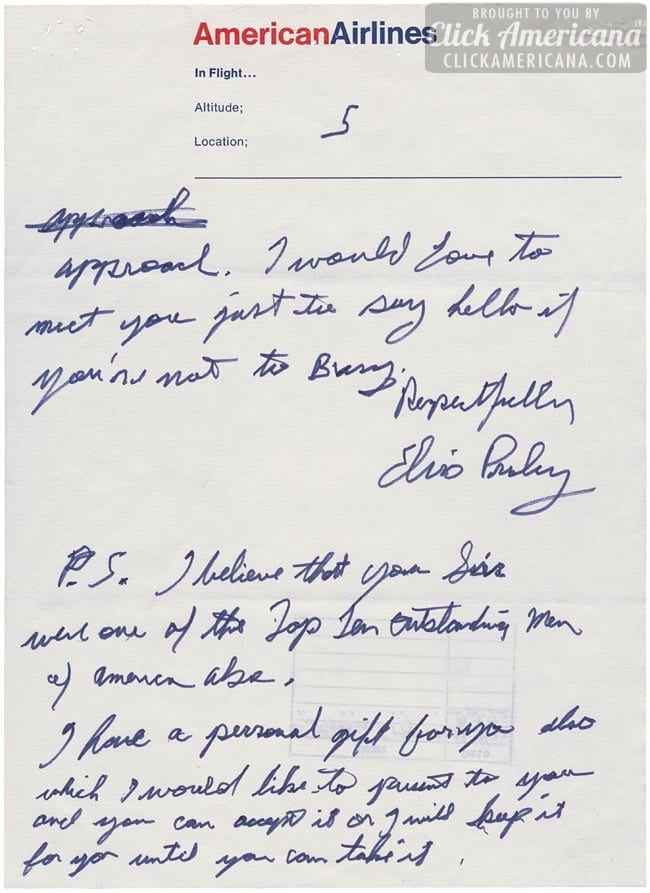 BROUGHT TO YOU BY
Click Americana
CLICKAMERICANA.COM
AmericanAirlines
In Flight...
Altitude;
Location;
5
approach
approach. I would Love to
meet you just to say hello if
you're not to Busy.
Respectfully
Elvis Presley
P.S. I believe that you Sir
were one of the Top Ten Outstanding Men
of America also.
I have a personal gift for you also
which I would like to present to you
and you can accept it or I will keep it
for you until you can take it.